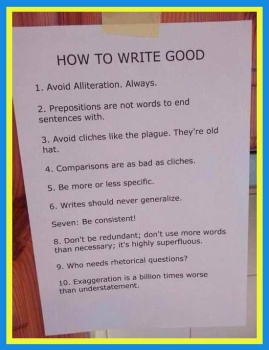 HOW TO WRITE GOOD
1. Avoid Alliteration. Always.
2. Prepositions are not words to end
sentences with.
3. Avoid cliches like the plague. They're old
hat.
4. Comparisons are as bad as cliches.
5. Be more or less specific.
6. Writes should never generalize.
Seven: Be consistent!
8. Don't be redundant; don't use more words
than necessary; it's highly superfluous.
9. Who needs rhetorical questions?
10. Exaggeration is a billion times worse
than understatement.